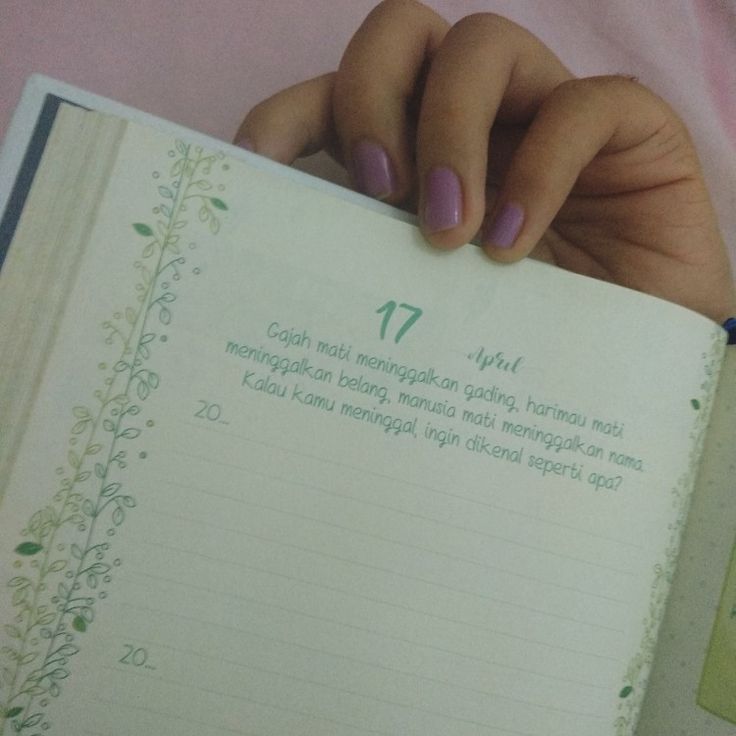 17 April
Gajah mati meninggalkan gading, harimau mati
meninggalkan belang, manusia mati meninggalkan nama.
Kalau kamu meninggal, ingin dikenal seperti apa?
20...
20...